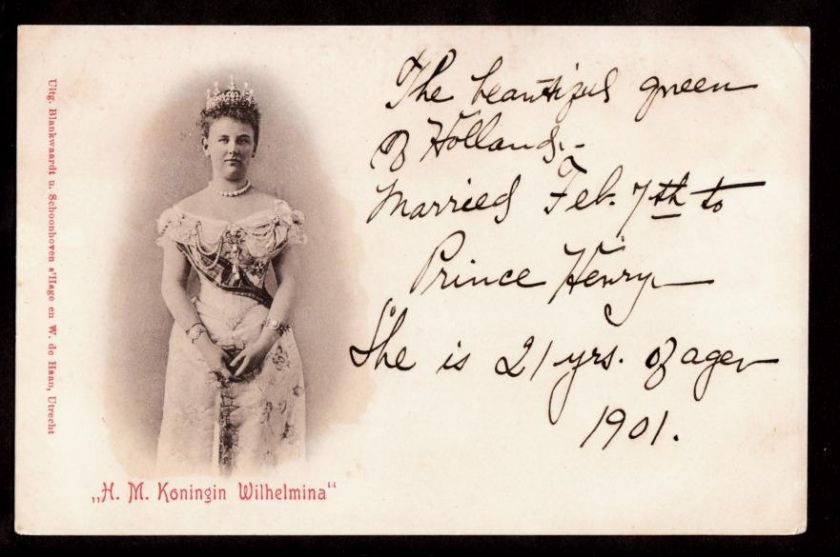 Uitg. Blankwaardt u. Schoonhoven s'Hage en W. de Haan, Utrecht
The beautiful queen
of Holland.-
Married Feb. 7th to
Prince Henry-
She is 21 yrs. of age-
1901.
„H. M. Koningin Wilhelmina“